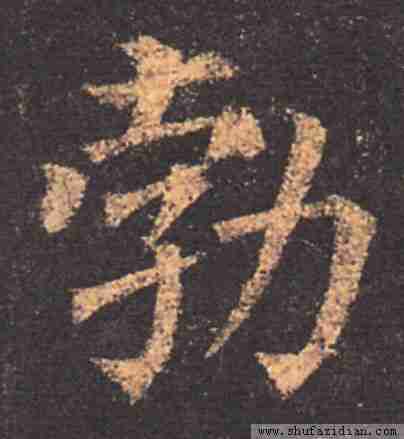 勃
www.shufazidian.com